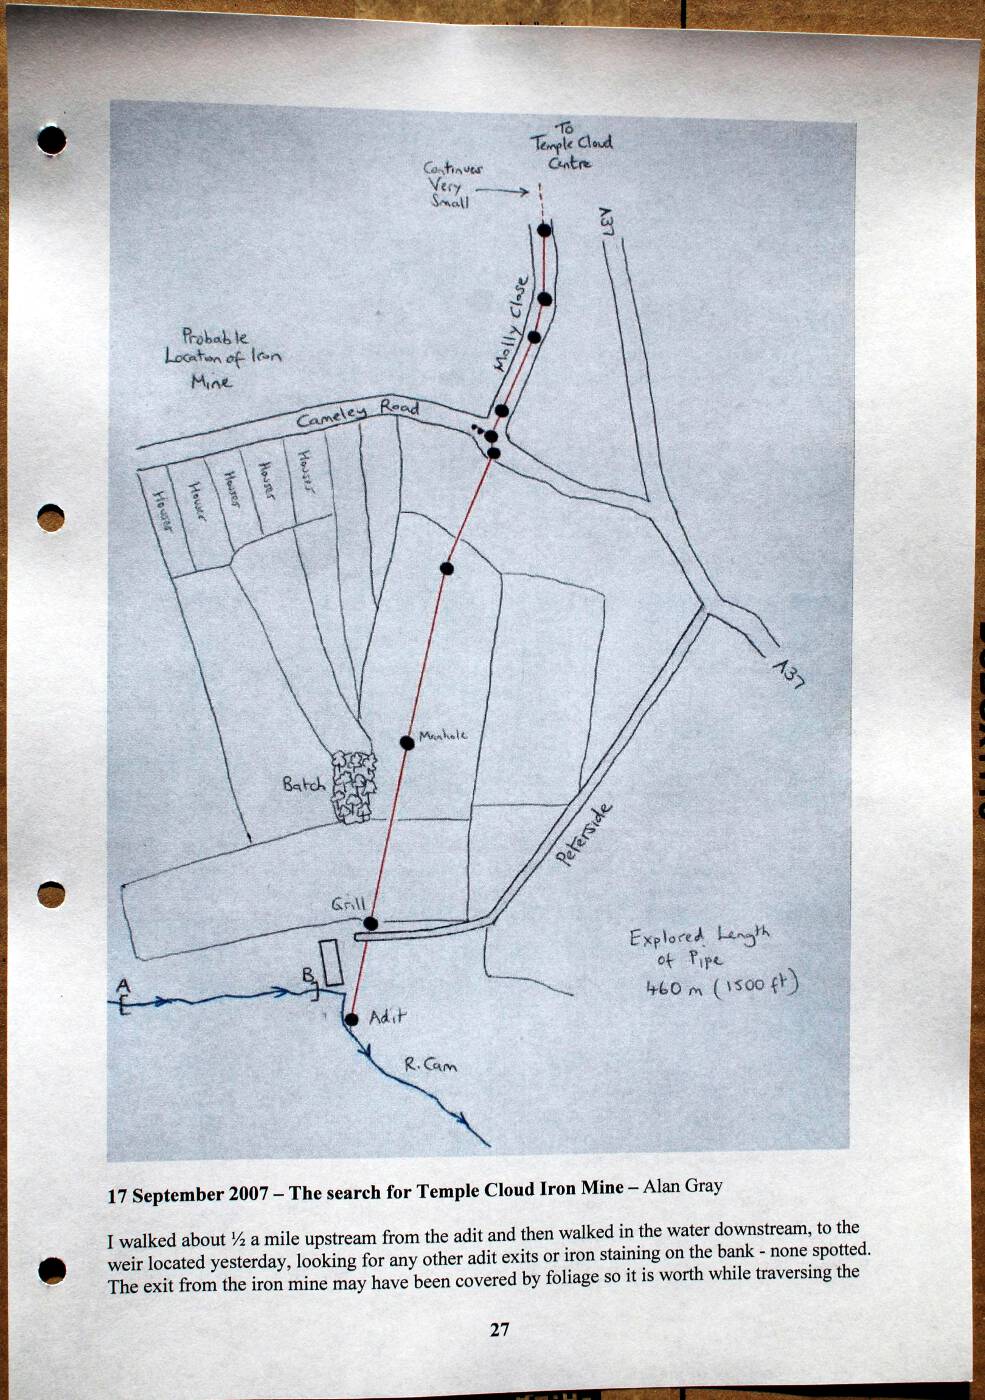 To
Temple Cloud
Centre
Continues
Very
Small
A37
Molly Close
Probable
Location of Iron
Mine
Cameley Road
Houses
Houses
Houses
Houses
Houses
A37
Manhole
Batch
Peterside
Grill
Explored Length
of Pipe
460 m (1500 ft)
A
B
Adit
R. Cam
17 September 2007 – The search for Temple Cloud Iron Mine – Alan Gray
I walked about ½ a mile upstream from the adit and then walked in the water downstream, to the
weir located yesterday, looking for any other adit exits or iron staining on the bank - none spotted.
The exit from the iron mine may have been covered by foliage so it is worth while traversing the
27